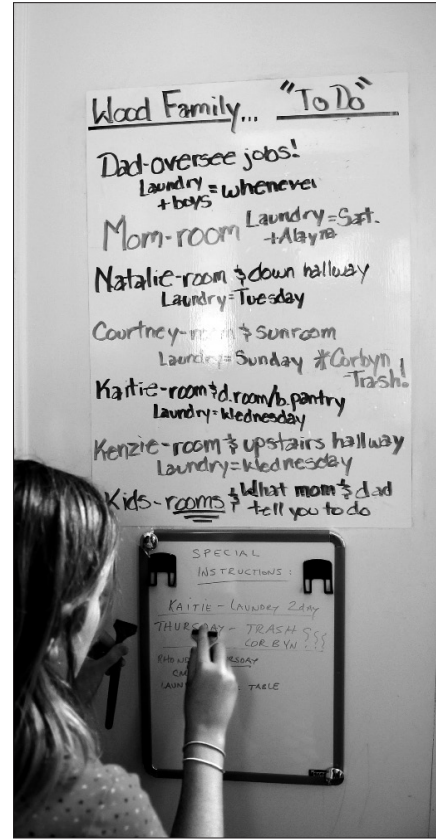 Wood Family... "To Do"
Dad-oversee jobs!
Laundry = whenever
+boys
Mom-room Laundry=Sat.
+Alayna
Natalie-room & down hallway
Laundry=Tuesday
Courtney-room & Sunroom
Laundry=Sunday *Corbyn
-Trash!
Kaitie-room & d.room/b.pantry
Laundry=Wednesday
Kenzie-room & upstairs hallway
Laundry=Wednesday
Kids-rooms & What mom & dad
tell you to do
SPECIAL
INSTRUCTIONS:
KAITIE - LAUNDRY 2day
THURSDAY - TRASH
CORBYN
TABLE